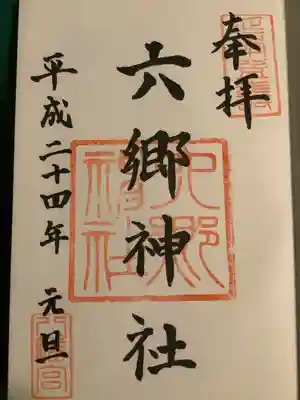 奉拝
六郷神社
平成二十四年 元旦
六郷神社